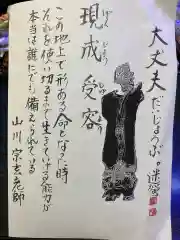 大丈夫だいじょうぶ。
現成受容
げんじょうじゅよう
この地上で形ある命となった時
それを使い切るまで生きている能力が
本当は誰にでも備えられている
山川宗玄老師